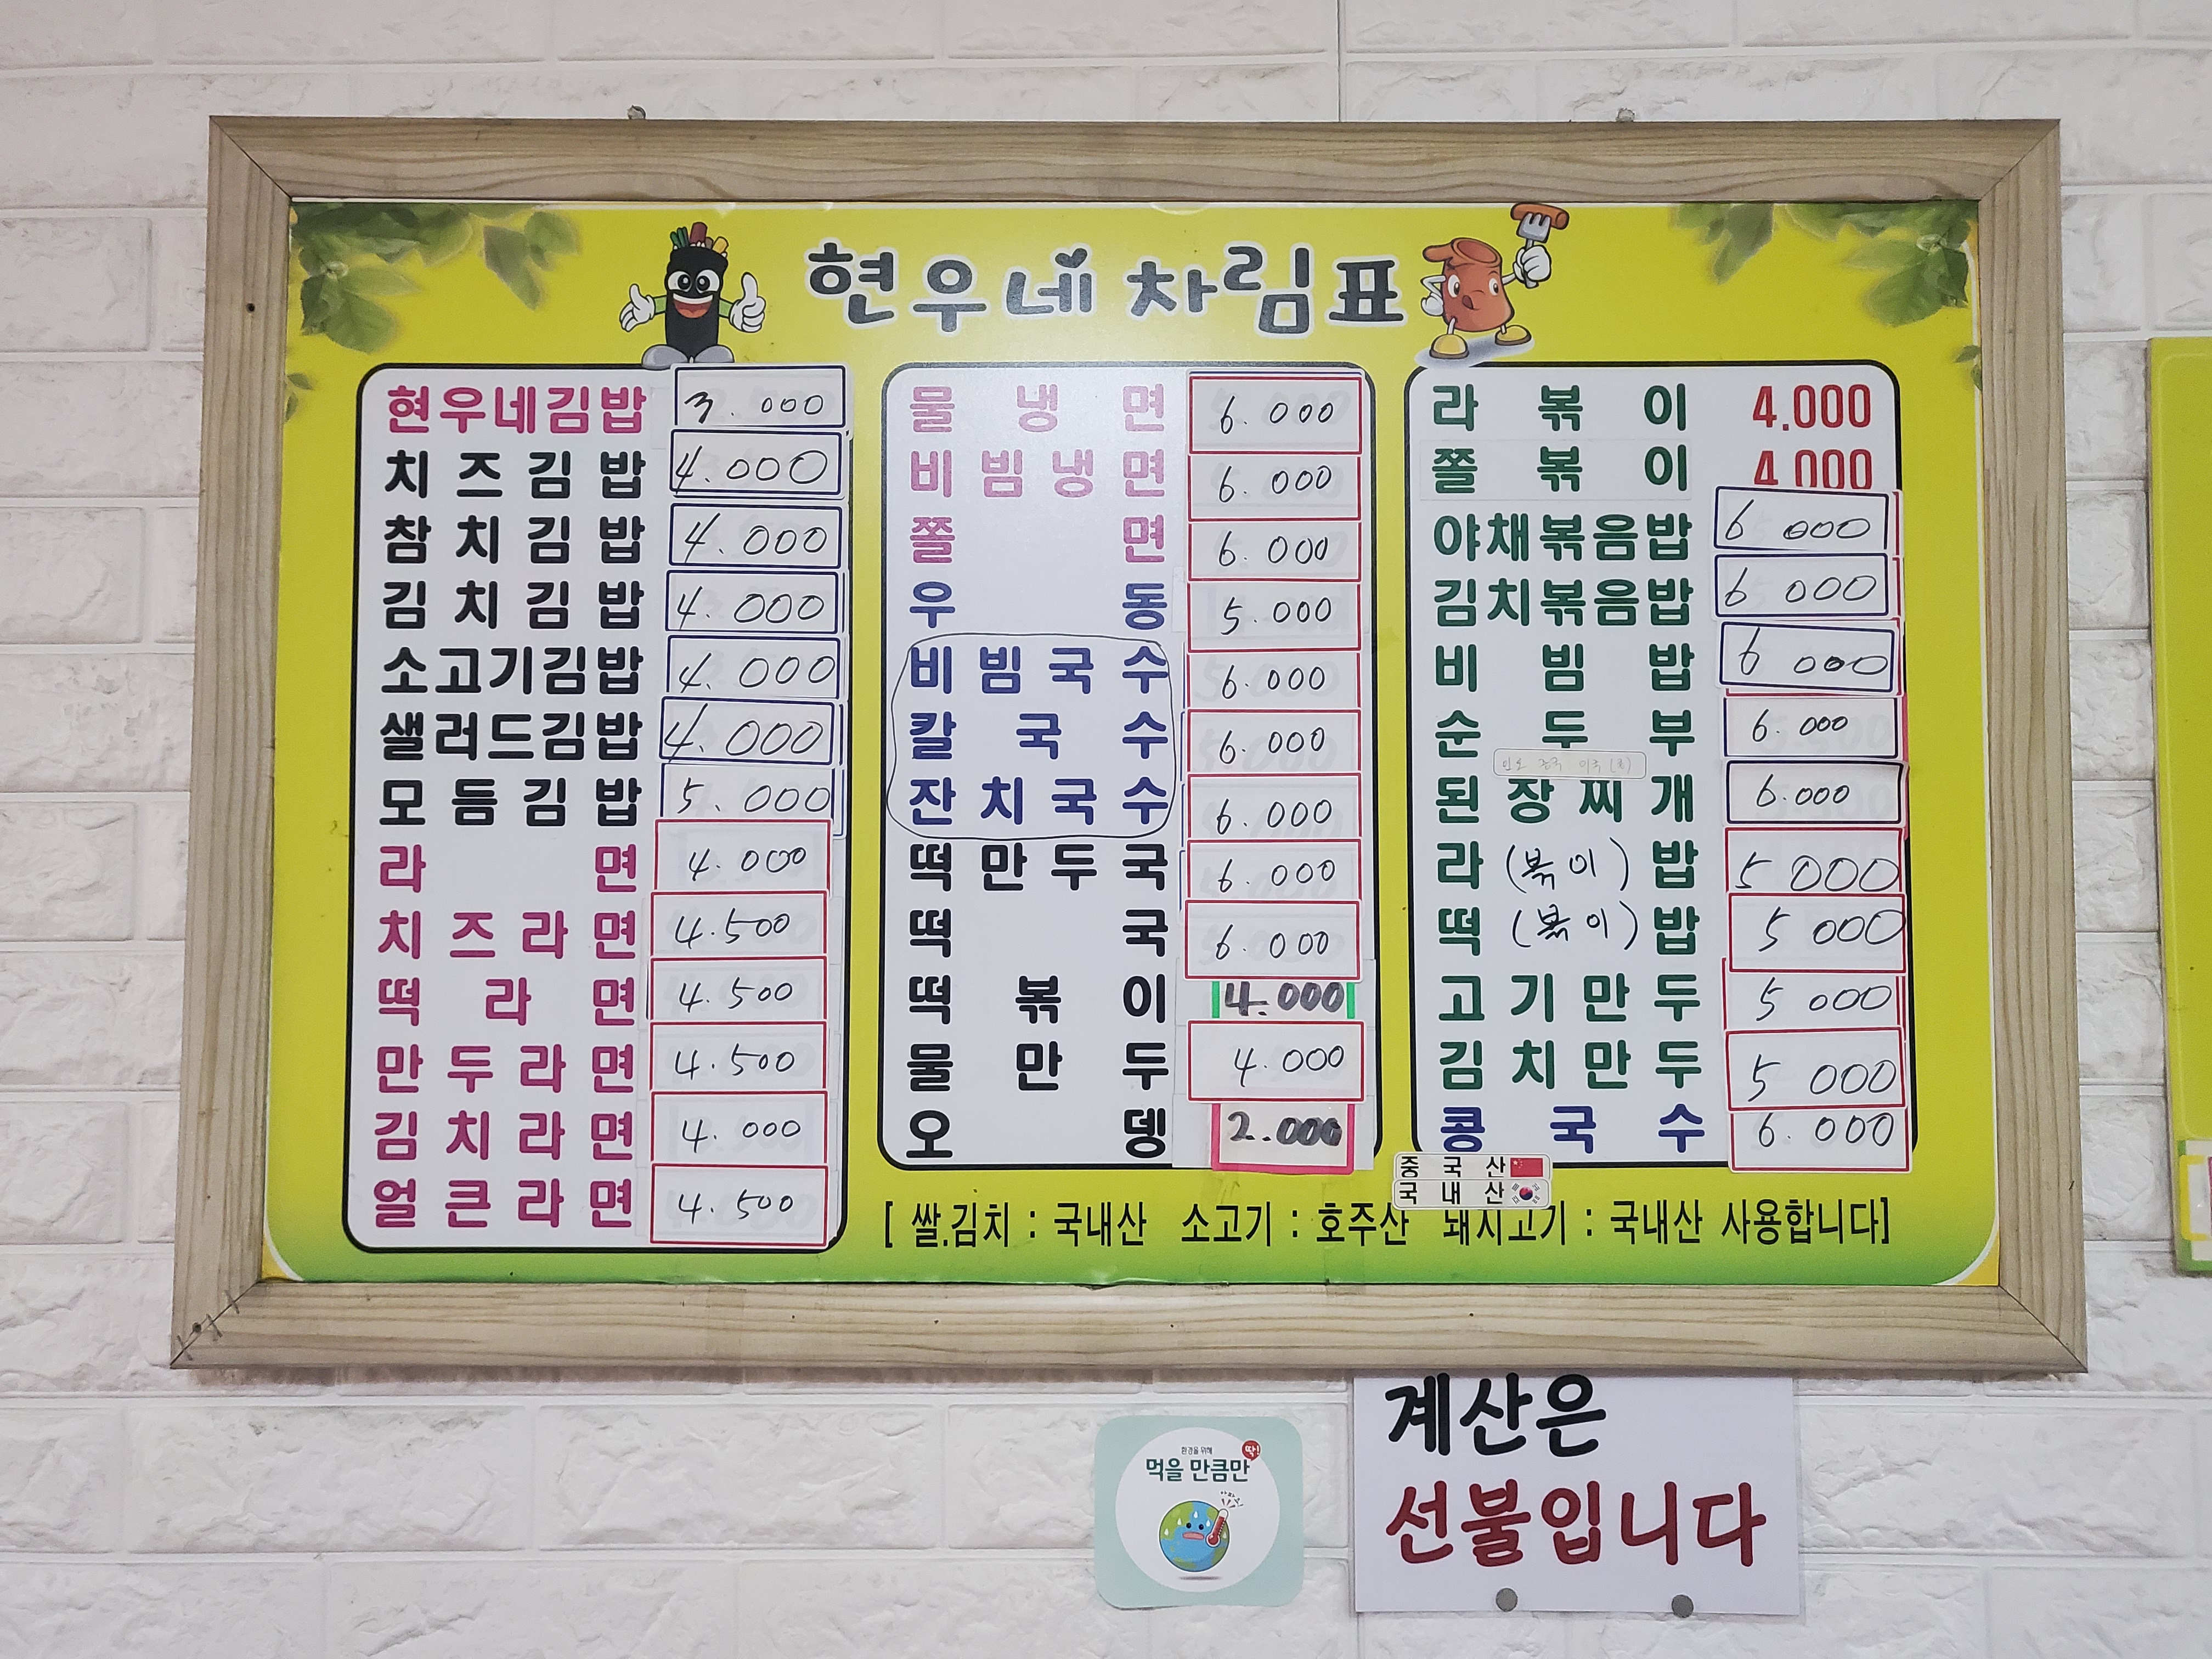 현우네 차림표
현우네김밥 3.000
치즈김밥 4.000
참치김밥 4.000
김치김밥 4.000
소고기김밥 4.000
샐러드김밥 4.000
모듬김밥 5.000
라면 4.000
치즈라면 4.500
떡라면 4.500
만두라면 4.500
김치라면 4.000
얼큰라면 4.500
물냉면 6.000
비빔냉면 6.000
쫄면 6.000
우동 5.000
비빔국수 6.000
칼국수 6.000
잔치국수 6.000
떡만두국 6.000
떡국 6.000
떡볶이 4.000
물만두 4.000
오뎅 2.000
라볶이 4.000
쫄볶이 4.000
야채볶음밥 6 000
김치볶음밥 6 000
비빔밥 6 000
순두부 6.000
된장찌개 6.000
라(볶이)밥 5 000
떡(볶이)밥 5 000
고기만두 5 000
김치만두 5 000
콩국수 6.000
중국산
국내산
[ 쌀.김치 : 국내산 소고기 : 호주산 돼지고기 : 국내산 사용합니다]
계산은
선불입니다
환경을 위해
딱!
먹을 만큼만